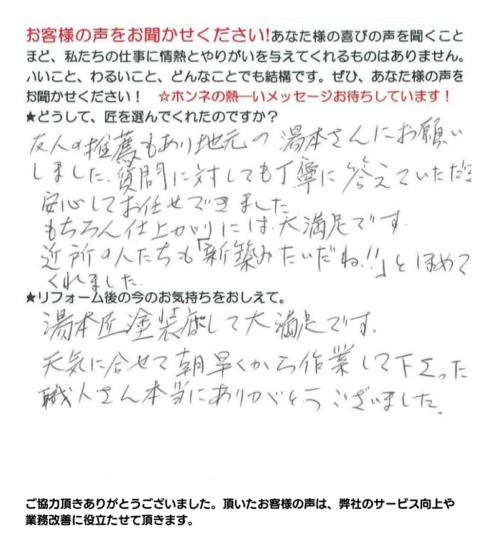 お客様の声をお聞かせください!あなた様の喜びの声を聞くこと
ほど、私たちの仕事に情熱とやりがいを与えてくれるものはありません。
ハいこと、わるいこと、どんなことでも結構です。ぜひ、あなた様の声を
お聞かせください! ☆ホンネの熱ーいメッセージお待ちしています!
★どうして、匠を選んでくれたのですか?
友人の推薦もあり地元の湯本さんにお願い
しました。質問に対しても丁寧に答えていただき
安心してお任せできました
もちろん仕上がりには大満足です。
近所の人たちも「新築みたいだね!!」とほめて
くれました。
★リフォーム後の今のお気持ちをおしえて。
湯本匠塗装 して大満足です。
天気に合せて朝早くから作業して下さった
職人さん本当にありがとうございました。
ご協力頂きありがとうございました。頂いたお客様の声は、弊社のサービス向上や
業務改善に役立たせて頂きます。